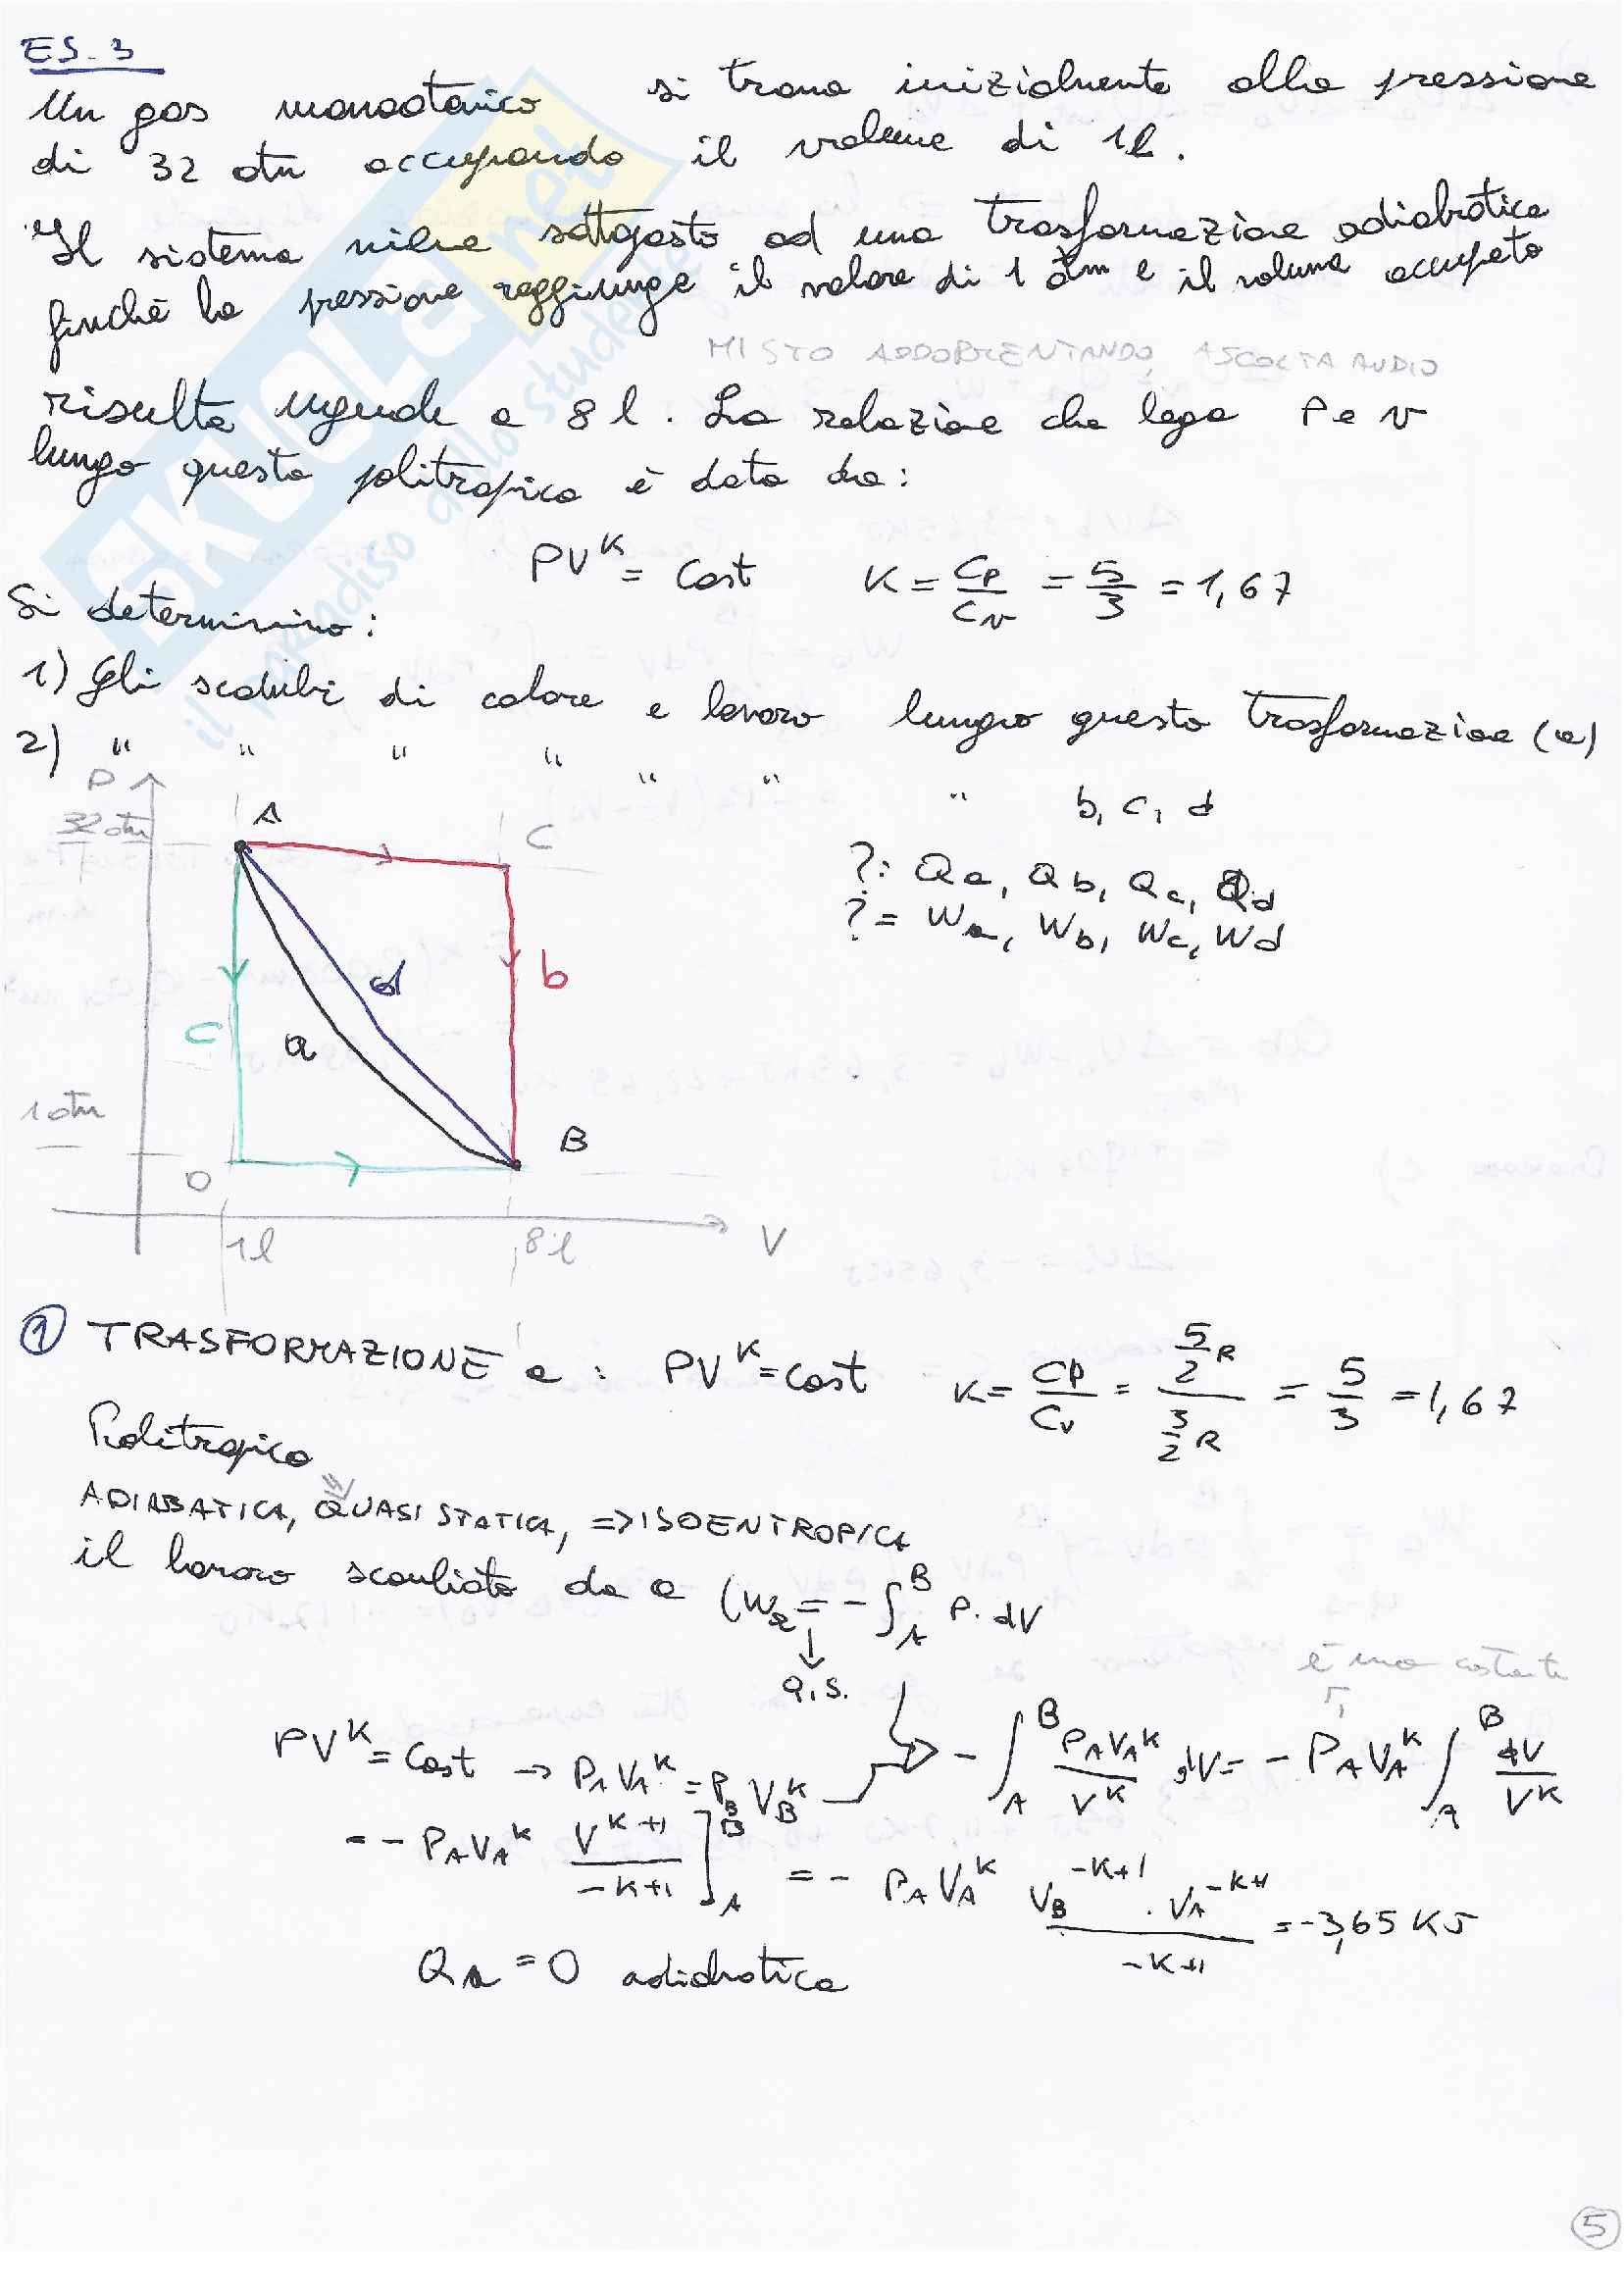 ES. 3
Un gas monoatomico si trova inizialmente alla pressione
di 32 atm occupando il volume di 1l.
Il sistema viene sottoposto ad una trasformazione adiabatica
finchè la pressione raggiunge il valore di 1 atm e il volume occupato
MI STO ADDORMENTANDO, ASCOLTA AUDIO
risulta uguale a 8 l. La relazione che lega P e V
lungo questa politropica è data da:
PV^K = Cost K = Cp/Cv = 5/3 = 1,67
Si determinino:
1) Gli scambi di calore e lavoro lungo questa trasformazione (a)
2) " " " " " " " b, c, d
P
32 atm
A
C
?: Qa, Qb, Qc, Qd
?= Wa, Wb, Wc, Wd
d
b
C
a
1 atm
B
D
1l
8l
V
① TRASFORMAZIONE a : PV^K = Cost K = Cp/Cv = (5/2 R)/(3/2 R) = 5/3 = 1,67
Politropica
ADIABATICA, QUASI STATICA, => ISOENTROPICA
il lavoro scambiato da a (Wa = - ∫_A^B P. dV
Q.S.
è una costante
PV^K = Cost → P_A V_A^K = P_B V_B^K → - ∫_A^B P_A V_A^K / V^K dV = - P_A V_A^K ∫_A^B dV / V^K
= - P_A V_A^K V^K+1 / -K+1 ]_A^B = - P_A V_A^K V_B^-K+1 . V_A^-K+1 / -K+1 = -3,65 KJ
Qa = 0 adiabatica
5
SKUOLA.net
il paradiso dello studente